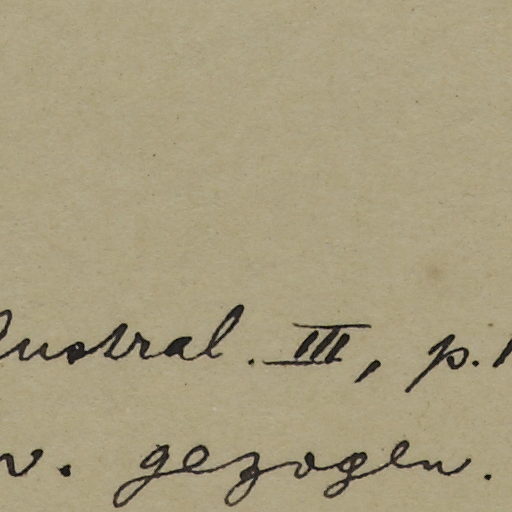 Austral. III, p. 1
v. gezogen.